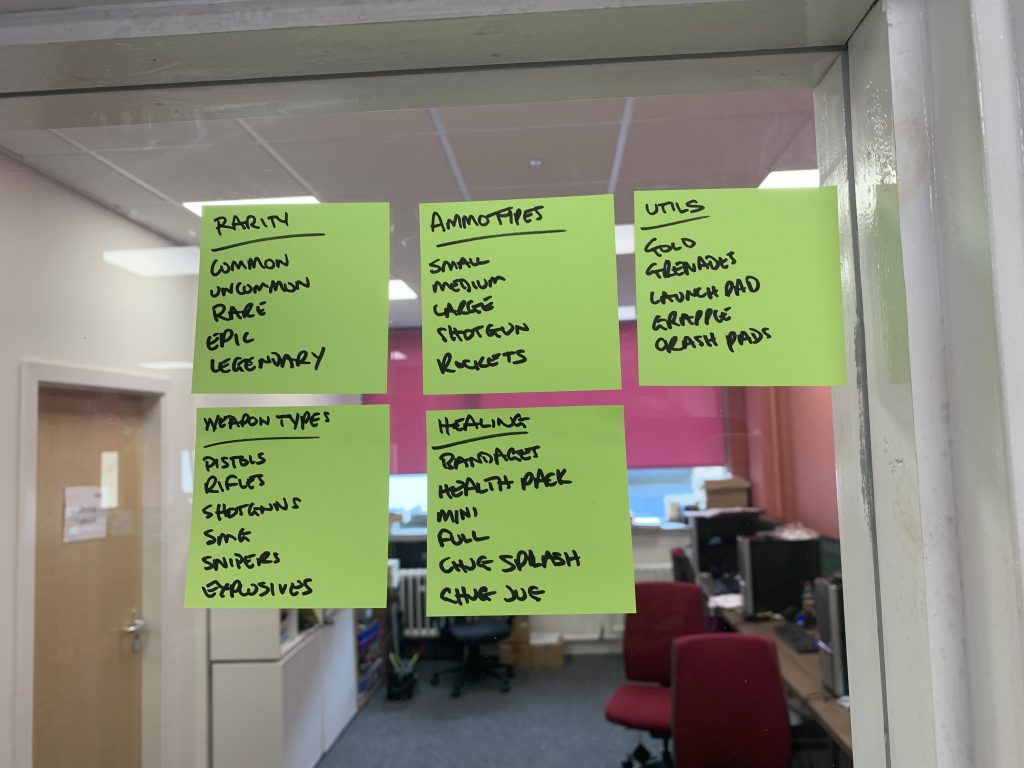 RARITY
COMMON
UNCOMMON
RARE
EPIC
LEGENDARY
AMMOTYPES
SMALL
MEDIUM
LARGE
SHOTGUN
ROCKETS
UTILS
GOLD
GRENADES
LAUNCH PAD
GRAPPLE
CRASH PADS
WEAPON TYPES
PISTOLS
RIFLES
SHOTGUNS
SMG
SNIPERS
EXPLOSIVES
HEALING
BANDAGES
HEALTH PACK
MINI
FULL
CHUG SPLASH
CHUG JUG